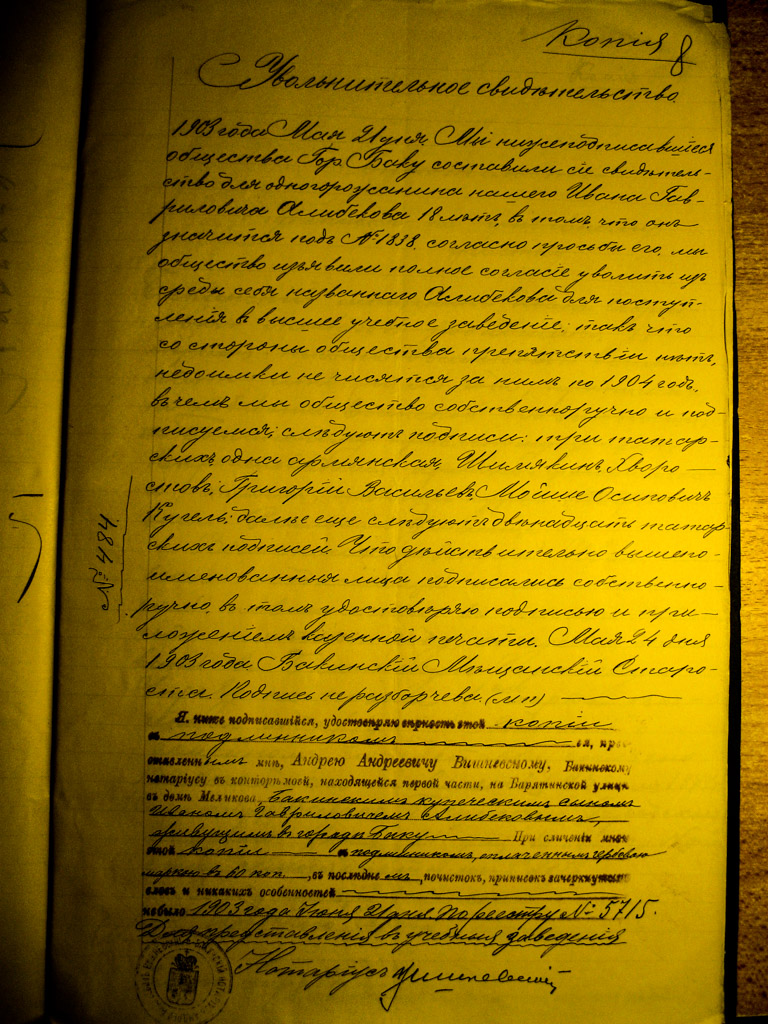 Копія 8
Увольнительное свидѣтельство.
1903 года Мая 21 дня. Мы нижеподписавшіеся
общества Гор. Баку составили сіе свидѣтель-
ство для одногорожанина нашего Ивана Гав-
риловича Алибекова 18 лѣтъ, въ томъ, что онъ
значится подъ № 1838. согласно просьбы его, мы
общество изъявили полное согласіе уволить изъ
среды себя названнаго Алибекова для поступ-
ленія въ высшее учебное заведеніе; такъ что
со стороны общества препятствій нѣтъ,
недоимки не числятся за нимъ по 1904 годъ,
въ чемъ мы общество собственноручно и под-
писуемся; слѣдуютъ подписи: три татар-
скихъ, одна армянская, Шимякинъ, Хворо-
стовъ, Григорій Васильевъ, Мойше Осиповичъ
Кугель; далѣе еще слѣдуютъ двѣнадцать татар-
скихъ подписей. Что дѣйствительно вышепо-
именованныя лица подписались собственно-
ручно, въ томъ удостовѣряю подписью и при-
ложеніемъ казенной печати. Мая 24 дня
1903 года Бакинскій Мѣщанскій Старо-
ста. Подпись неразборчева. (м п)
№ 484.
Я, ниже подписавшійся, удостовѣряю вѣрность этой копіи
съ подлинникомъ ея, пред-
ставленнымъ мнѣ, Андрею Андреевичу Вишневскому, Бакинскому
нотаріусу въ конторѣ моей, находящейся первой части, на Барятинской улицѣ
въ домѣ Меликова, Бакинскимъ купеческимъ сыномъ
Иваномъ Гавриловичемъ Алибековымъ,
живущимъ въ городѣ Баку При сличеніи мною
этой копіи съ подлинникомъ, оплаченнымъ гербовою
маркою въ 60 коп., въ послѣднемъ, почистокъ, приписокъ зачеркнутыхъ
словъ и никакихъ особенностей
не было 1903 года Іюня 21 дня По реестру № 5715.
Для представленія въ учебныя заведенія
Нотаріусъ Вишневскій